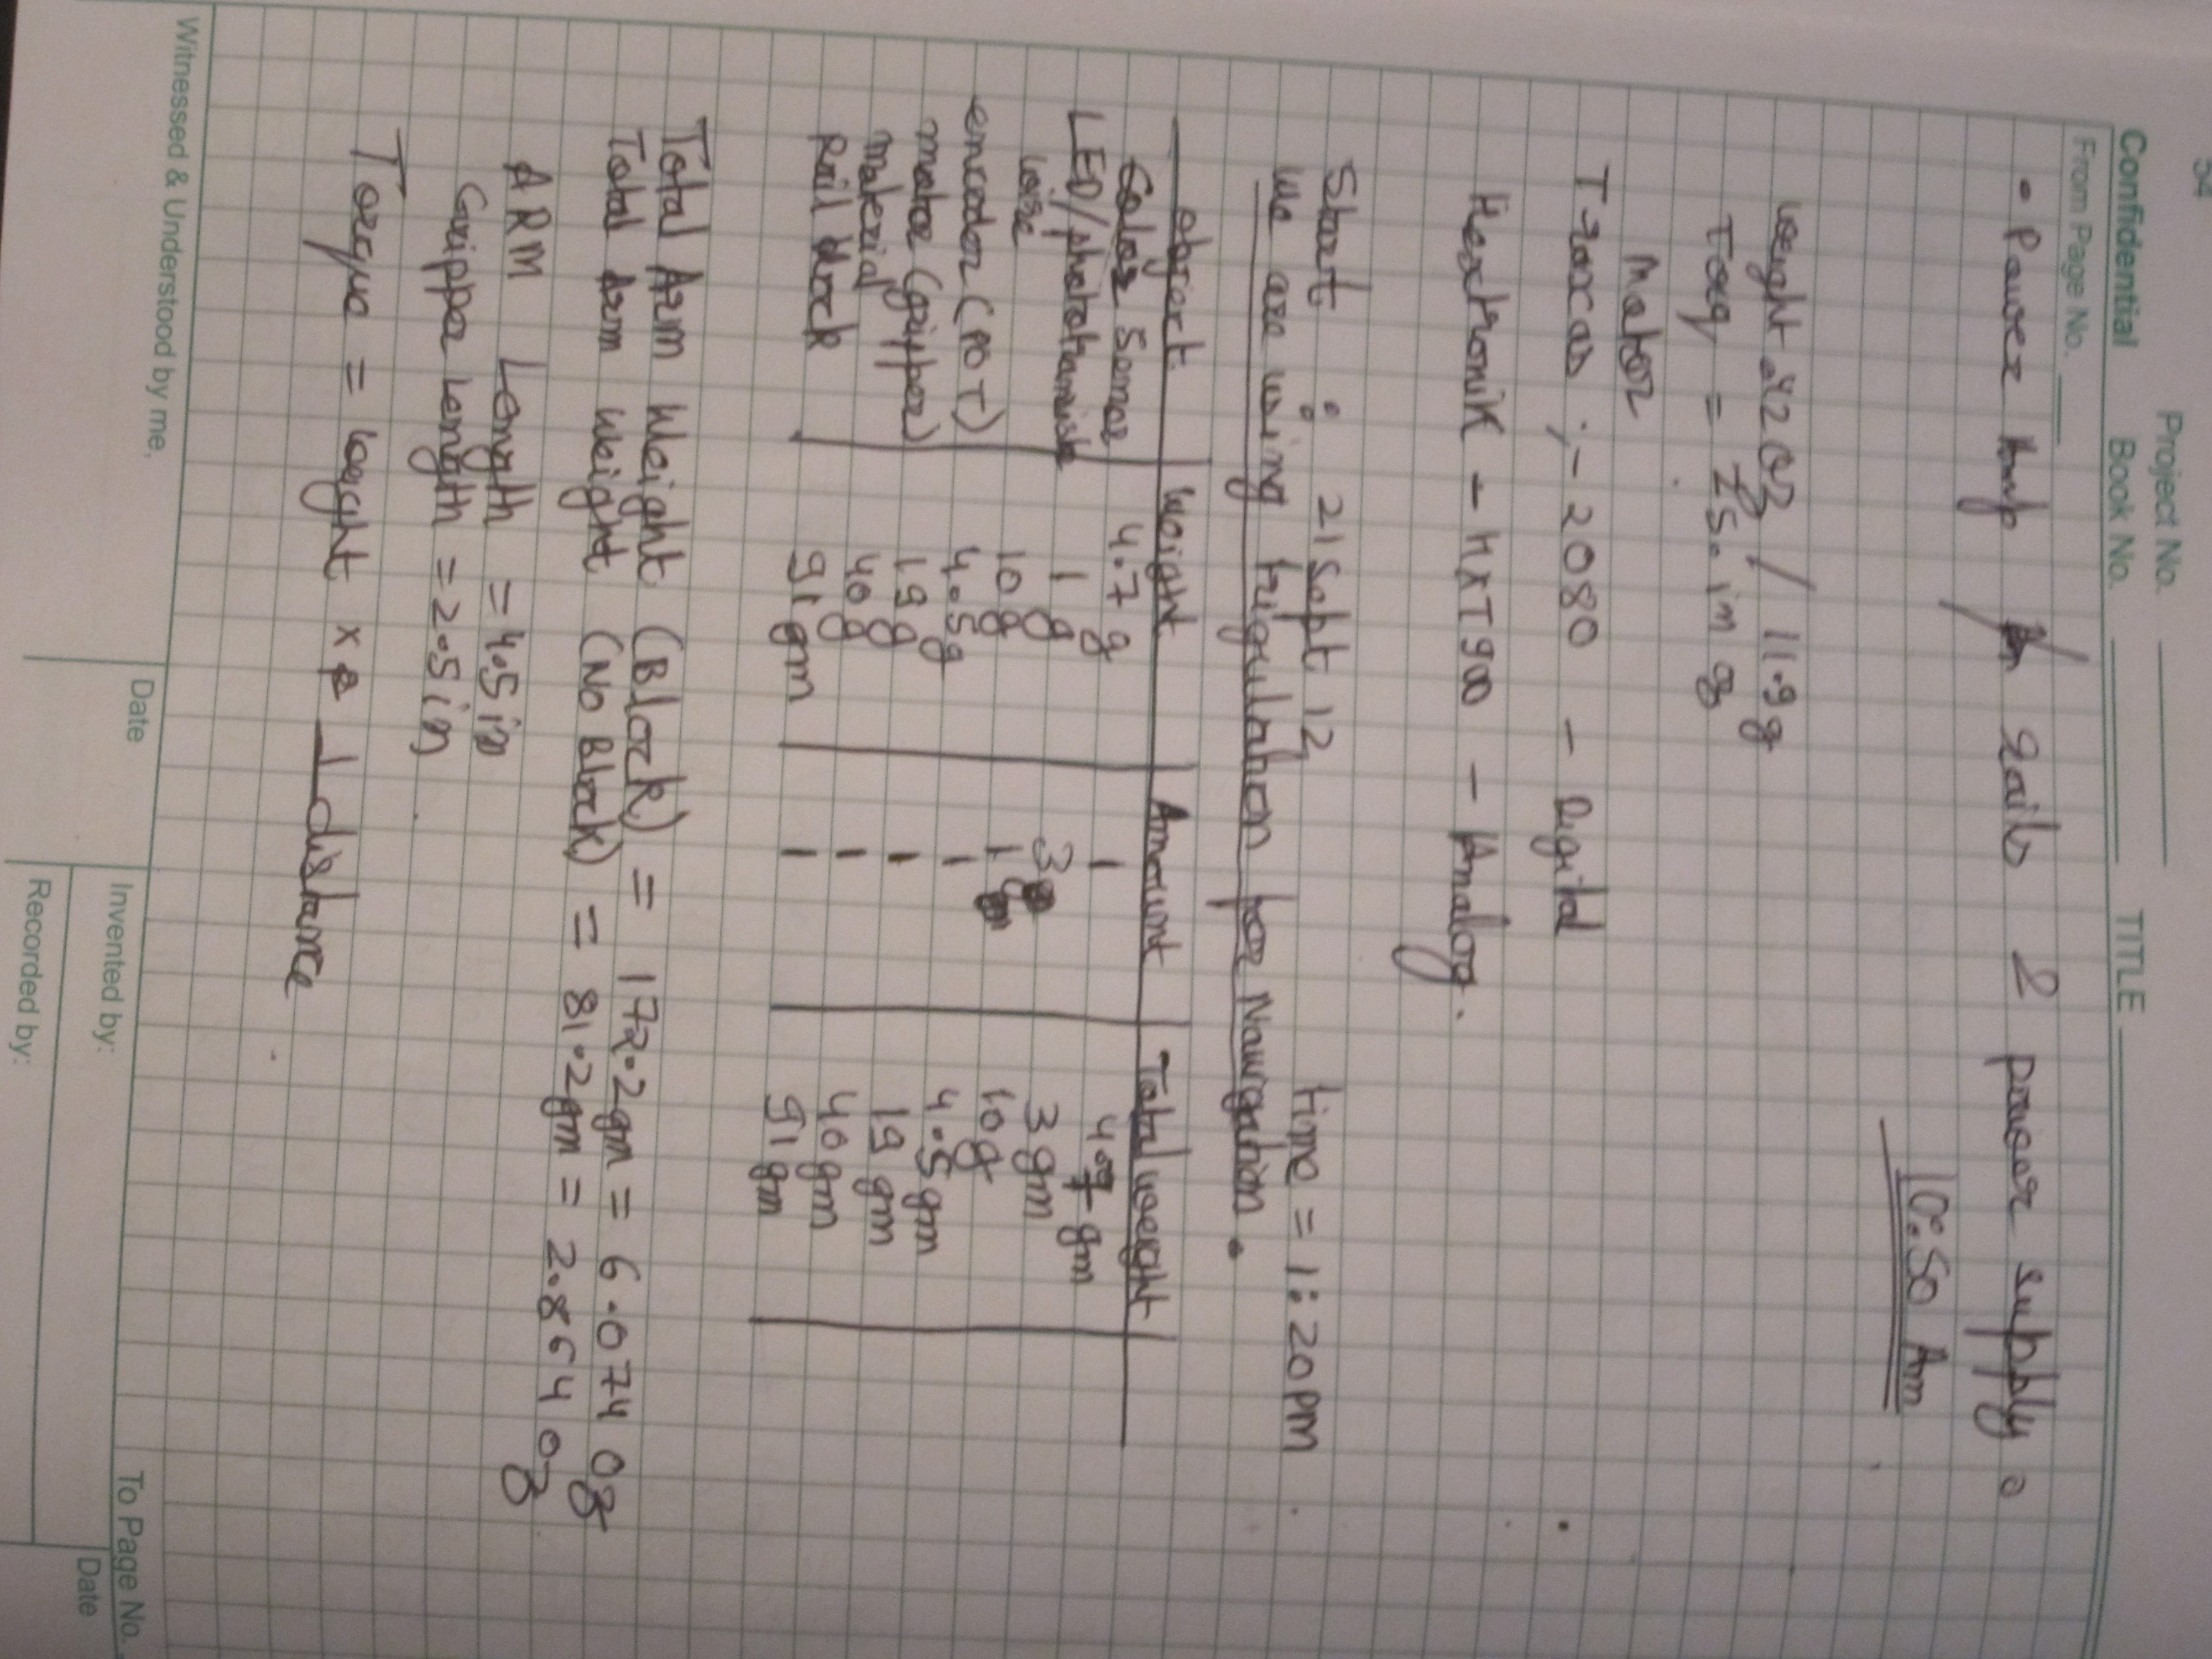 54
Project No.
Confidential Book No. TITLE
From Page No.
• Power rails 2 power supply
10:50 Am
weight .42 oz / 11.9g
Torq = 25. in oz
Motor
Traxxas :- 2080 - Digital
Hextronik - HXT900 - Analog.
Start : 21 Sept 12 time = 1:20 PM
we are using for Navigation.
object weight Amount Total weight
Color Sensor 4.7 g 1 4.7 gm
LED/ 1 g 3 3 gm
wire 10 g 1 10g
encoder (POT) 4.5g 1 4.5 gm
motor (gripper) 19 g 1 19 gm
material 40 g 1 40 gm
Rail block 91 gm 1 91 gm
Total Arm Weight (Block) = 172.2 gm = 6.074 oz
Total Arm Weight (NO Block) = 81.2 gm = 2.864 oz
ARM Length = 4.5 in
Gripper Length = 2.5 in
Torque = weight x ⊥ distance
To Page No.
Witnessed & Understood by me, Date Invented by: Date
Recorded by: